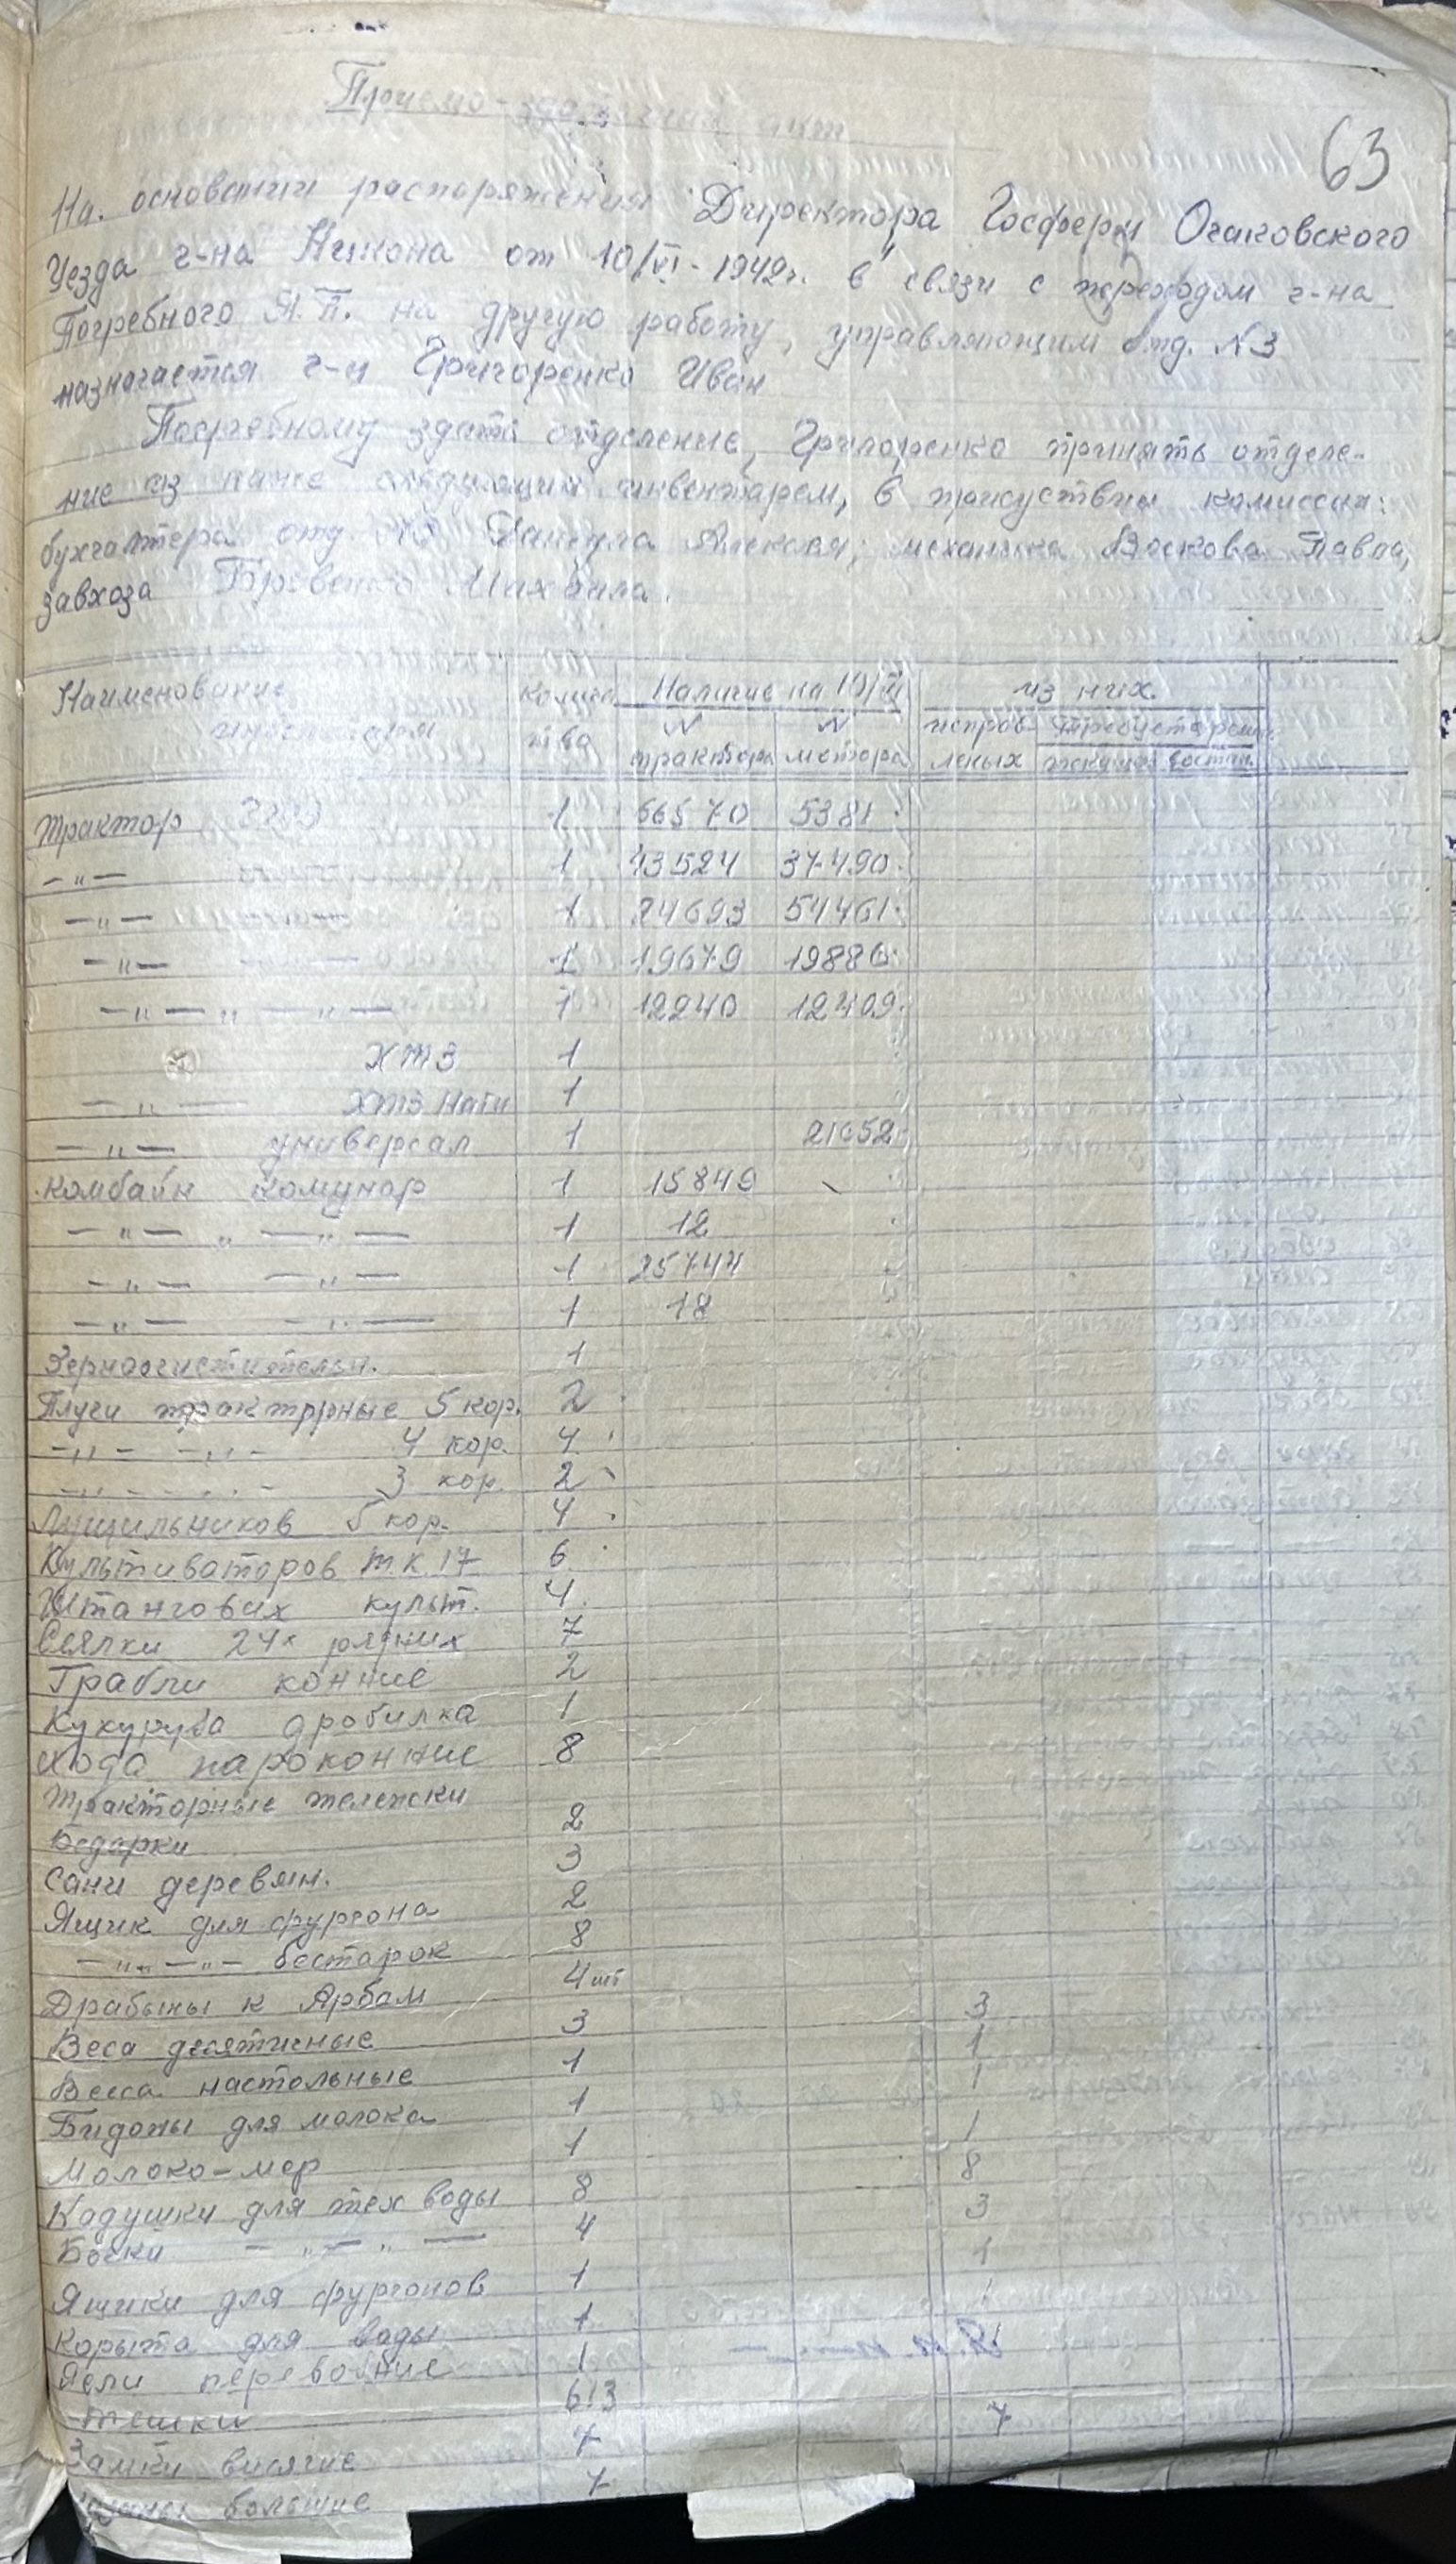 Приемо-здаточний акт
63
На основании распоряжения Директора Госферм Очаковского
Уезда г-на от 10/VI-1942г. в связи с переходом г-на
Погребного Я.П. на другую работу, управляющим отд. N3
назначается г-н Григоренко Иван
Погребному здать отделение, Григоренко принять отделе-
ние инвентарем, в присуствии комиссии:
бухгалтера отд. Алексея, механика Воскова Павла,
завхоза Михаила.
Наименование Количес Наличие на 10/VI из них.
инвентаря тво N N исправ- требуется ремон
трактора мотора текущий востан.
Трактор 1 66570 5381
—"— 1 43524 37490
—"— 1 24693 54461
—"— 1 19679 19886
—"— " —"— 1 12240 12409
ХТЗ 1
—"— ХТЗ Нати 1
—"— универсал 1 21652
Комбайн Комунар 1 15849
—"— " —"— 1 12
—"— —"— 1 25744
—"— —"— 1 18
Зерноочистители. 1
Плуги тракторные 5 кор. 2
—"— —"— 4 кор. 4
—"— 3 кор. 2
Лущильников 5 кор. 4
Культиваторов т.к.17 6
Штангових культ. 4
Сеялки 24х рядних 7
Грабли конние 2
Кукуруза дробилка 1
Хода пароконние 8
Тракторные тележки
Бедарки 2
Сани деревян. 3
Ящик для фургона 2
—"— —"— бестарок 8
Драбыны к Арбам 4 шт
Веса десятичные 3 3
Весса настольные 1 1
Бидоны для молока 1 1
Молоко-мер 1 1
Кадушки для тех воды 8 8
Бочки — "— " — 4 3
Ящики для фургонов 1 1
Корыта для воды 1 1
Ясли 1 1
613
Замки висячие 7 7
большие 7